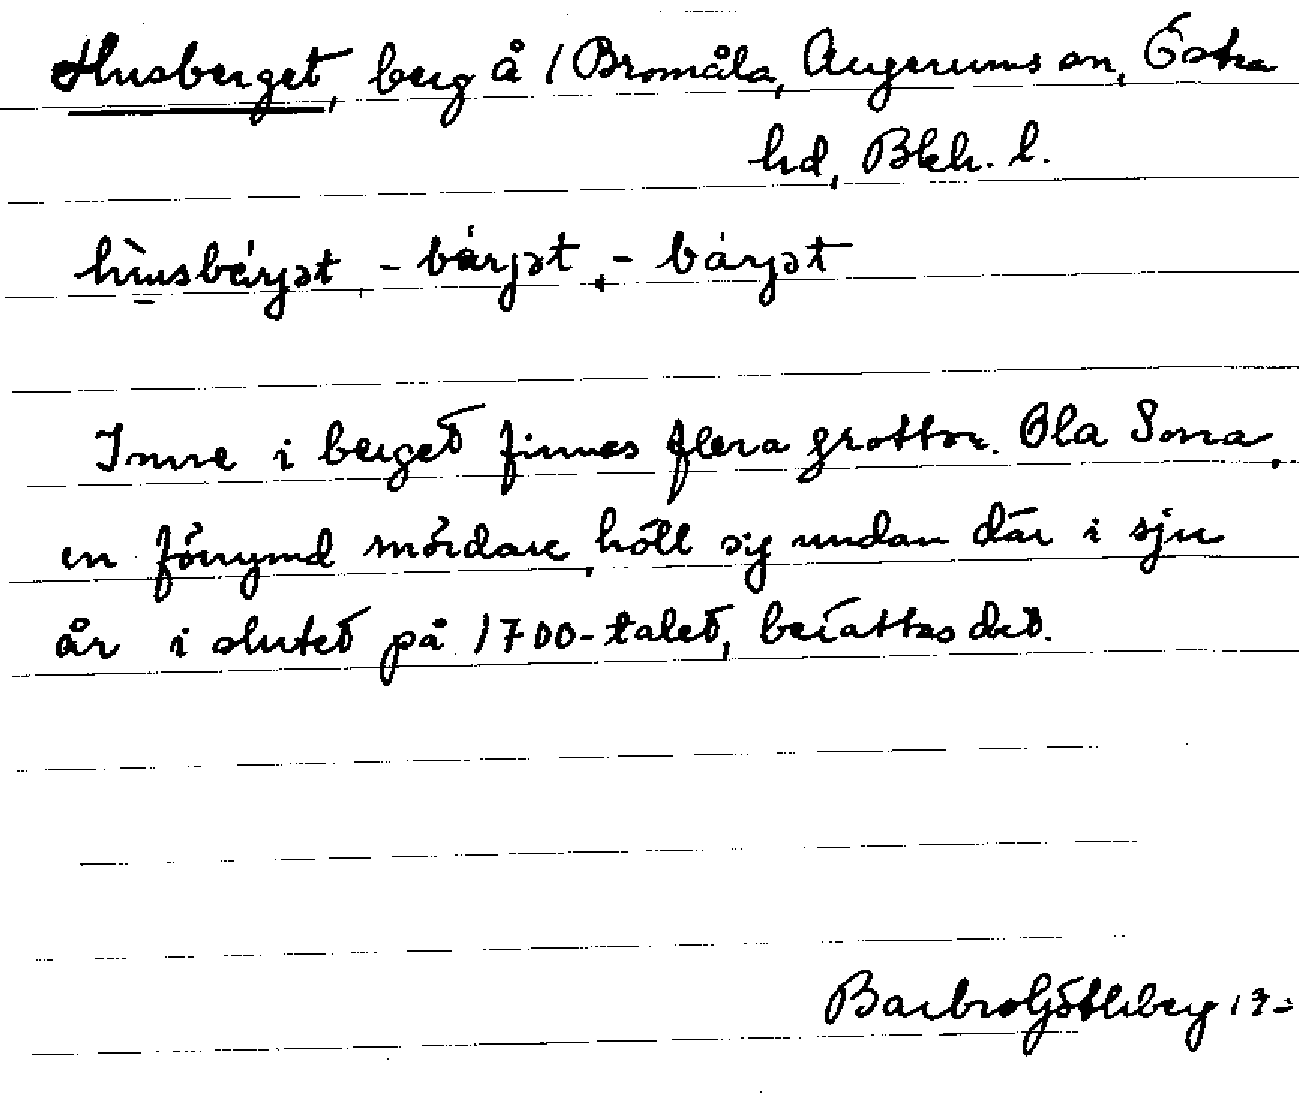 Husberget, berg å 1 Bromåla, Augerums sn, Östra
hd, Bkh. l.
Inne i berget finnes flera grottor. Ola Sona,
en förrymd mördare, höll sig undan där i sju
år i slutet på 1700-talet, berättas det.
Barbro